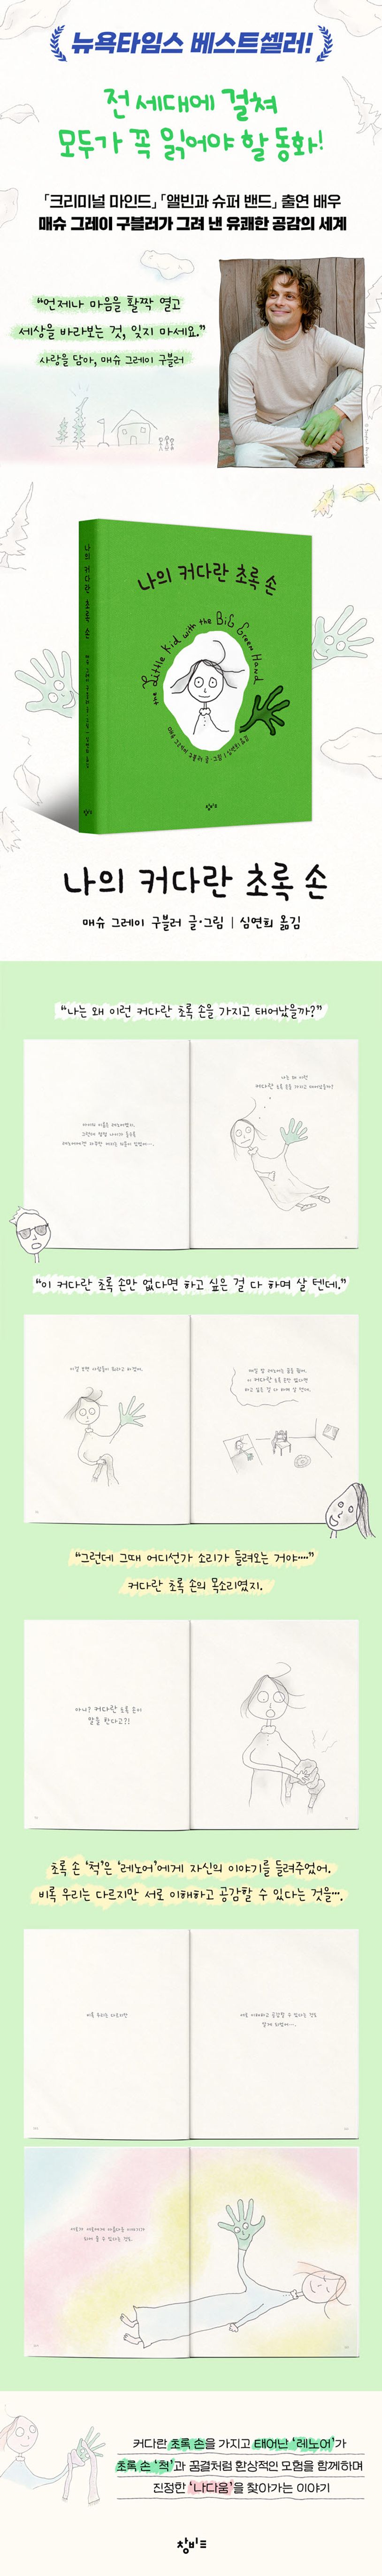 뉴욕타임스 베스트셀러!
전 세대에 걸쳐
모두가 꼭 읽어야 할 동화!
「크리미널 마인드」 「앨빈과 슈퍼 밴드」 출연 배우
매슈 그레이 구블러가 그려 낸 유쾌한 공감의 세계
“언제나 마음을 활짝 열고
세상을 바라보는 것, 잊지 마세요.”
사랑을 담아, 매슈 그레이 구블러
나의 커다란 초록 손
나의 커다란 초록 손
the Little Kid with the BIG Green Hand
매슈 그레이 구블러 글·그림 | 심연희 옮김
창비
나의 커다란 초록 손
매슈 그레이 구블러 글·그림 | 심연희 옮김
“나는 왜 이런 커다란 초록 손을 가지고 태어났을까?”
나는 왜 이런
커다란 초록 손을 가지고 태어났을까?
아이의 이름은 레노어였지.
“이 커다란 초록 손만 없다면 하고 싶은 걸 다 하며 살 텐데.”
이 커다란 초록 손만 없다면
하고 싶은 걸 다 하며 살 텐데.
“그런데 그때 어디선가 소리가 들려오는 거야….”
커다란 초록 손의 목소리였지.
아니? 커다란 초록 손이
말을 한다고?!
초록 손 ‘척’은 ‘레노어’에게 자신의 이야기를 들려주었어.
비록 우리는 다르지만 서로 이해하고 공감할 수 있다는 것을….
비록 우리는 다르지만
서로 이해하고 공감할 수 있다는 것도
알게 되었어….
커다란 초록 손을 가지고 태어난 ‘레노어’가
초록 손 ‘척’과 꿈결처럼 환상적인 모험을 함께하며
진정한 ‘나다움’을 찾아가는 이야기
창비